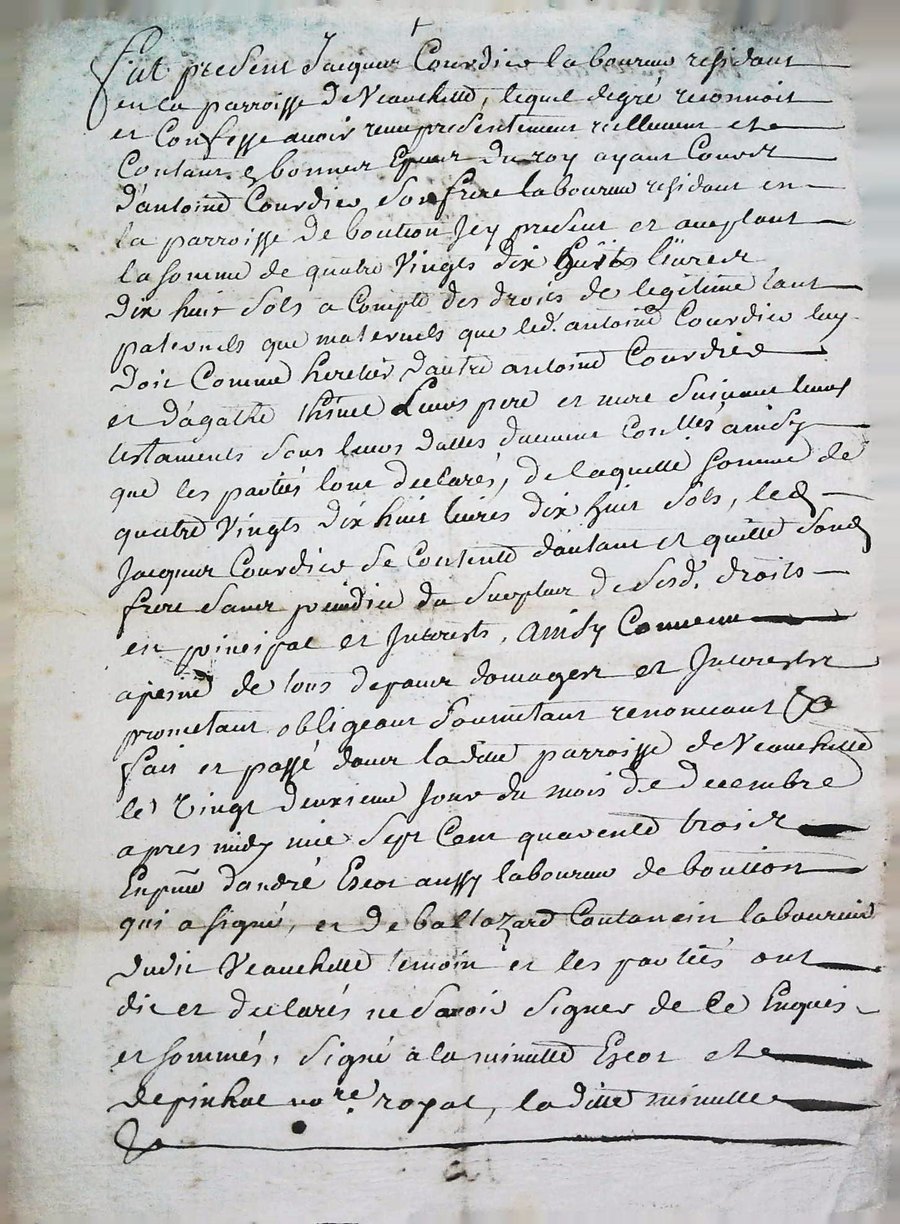 fut present Jacques Courdier laboureur residant
en la parroisse de Veauchette, lequel degré reconnoit
et Confesse avoir receu presentement reellement et
Contant en bonnes Especes du roy ayant Cours
d'antoine Courdier son frere laboureur residant en
la parroisse de boution Jcy present et aceptant
la somme de quatre Vingts dix huits livres
dix huit sols a Compte des droits de legitime tant
paternels que maternels que led. antoine Courdier luy
doit Comme heretier d'autre antoine Courdier
et d'agathe leurs pere et mere suivant leurs
testaments sous leurs dattes duement Conllés ainsy
que les parties lont declarés, de laquelle somme de
quatre Vingts dix huit livres dix huit sols, led
Jacques Courdier se Contente d'autant et quitte sond
frere sans prejudice du surplus de sesd. droits
en principal et Jnterests, ainsy Convenu
a peine de tous depans domages et Jnterests
prometant obligeant soumetant renonceant &a
fait et passé dans la ditte parroisse de Veauchette
le vingt deuxieme jour du mois de decembre
apres midy mil sept Cent quarente trois
En pnce d'andré Escot aussy laboureur de boution
qui a signé, et de baltazard Coutancin laboureur
dudit Veauchette temoin et les parties ont
dit et declarés ne savoir signer de Ce Enquis
et sommés, signé a la minutte Escot et
depinhac nore. royal, la ditte minutte